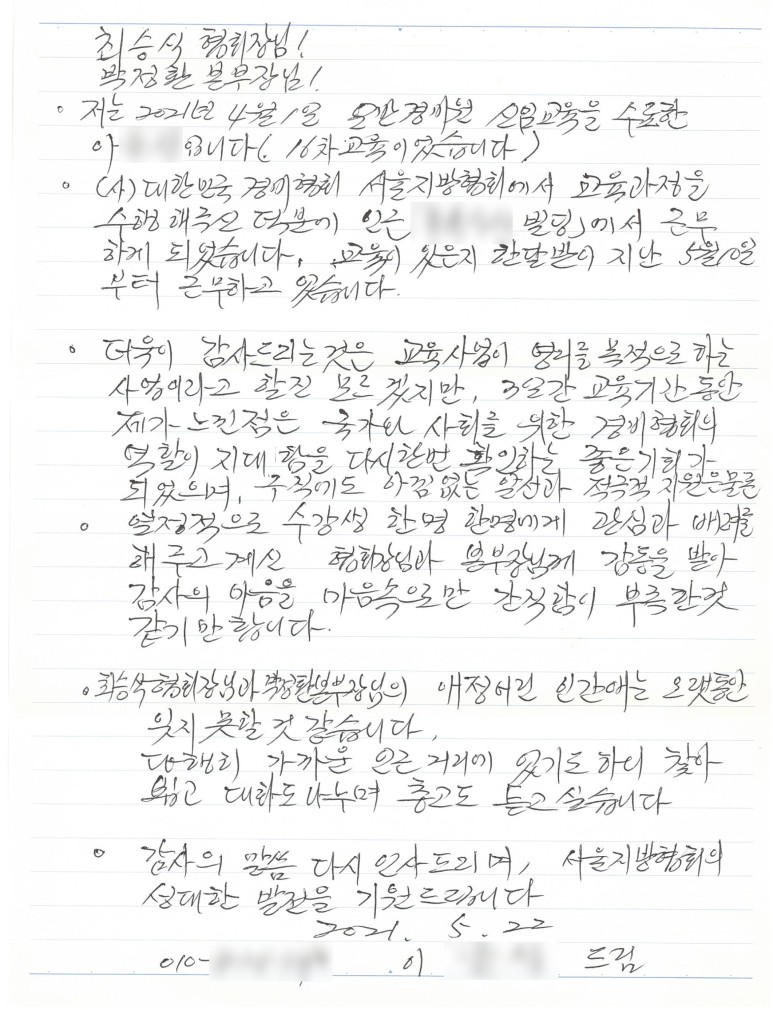 최승식 협회장님!
박정환 본부장님!
· 저는 2021년 4월 1일 일반경비원 신임교육을 수료한
이 입니다( 16차 교육이었습니다 )
· (사)대한민국 경비협회 서울지방협회에서 교육과정을
수행해주신 덕분에 인근 빌딩」에서 근무
하게 되었습니다. 교육이 있은지 한달반이 지난 5월10일
부터 근무하고 있습니다.
· 더욱이 감사드리는것은 교육사업이 영리를 목적으로 하는
사업이라고 할진 모르겠지만, 3일간 교육기간 동안
제가 느낀점은 국가와 사회를 위한 경비협회의
역할이 지대함을 다시한번 확인하는 좋은기회가
되었으며, 구직에도 아낌없는 알선과 적극적 지원은물론
· 열정적으로 수강생 한명 한명에게 관심과 배려를
해주고 계신 협회장님과 본부장님께 감동을 받아
감사의 마음을 마음속으로만 간직함이 부족한것
같기만 합니다.
· 최승식협회장님과 박정환본부장님의 애정어린 인간애는 오랫동안
잊지 못할 것 같습니다.
다행히 가까운 인근 거리에 있기도 하니 찾아
뵙고 대화도 나누며 충고도 듣고 싶습니다
· 감사의 말씀 다시 인사드리며, 서울지방협회의
성대한 발전을 기원드립니다
2021. 5. 22
010- 이 드림